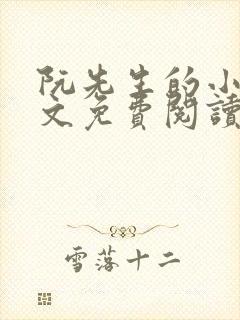 阮先生的小
文免費閱讀
雪落十二